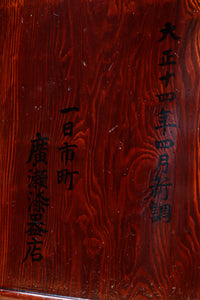 大正十四年四月新調
一日市町
廣瀬漆器店